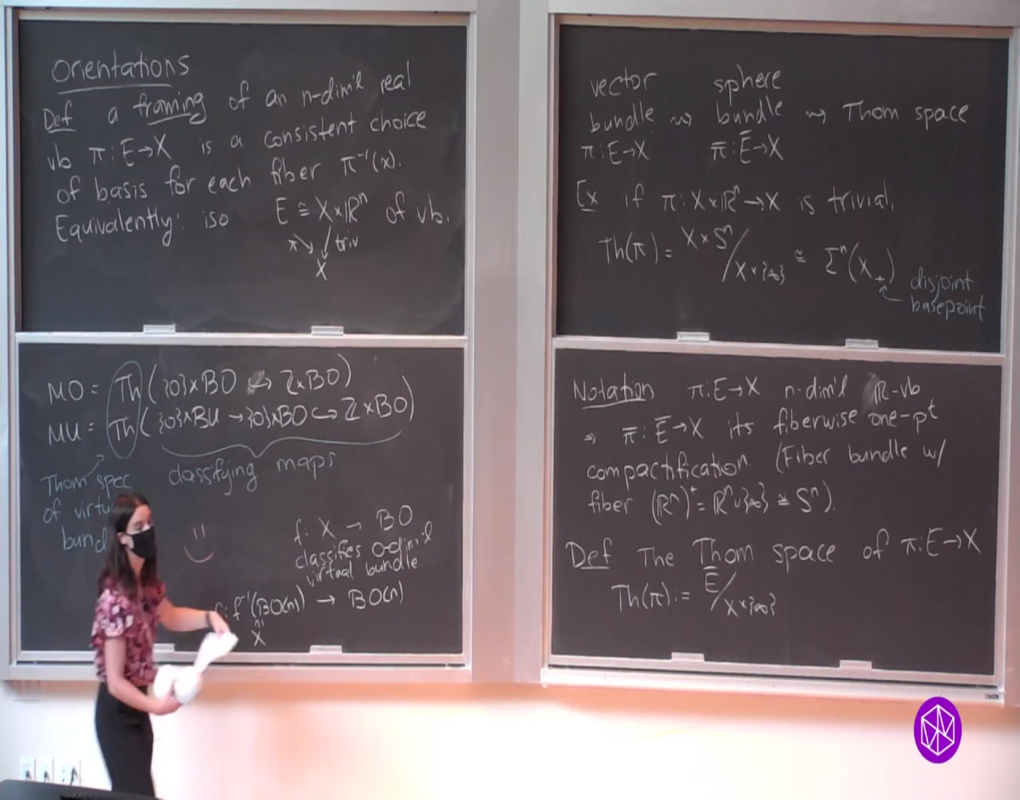 Orientations
Def a framing of an n-dim'l real
vb π: E→X is a consistent choice
of basis for each fiber π⁻¹(x).
Equivalently: iso E ≅ X×ℝⁿ of vb.
π ↘ ↓ triv
X
MO = Th({0}×BO ↪ Z×BO)
MU = Th({0}×BU → {0}×BO ↪ Z×BO)
classifying maps
Thom spec
of virtu
bund
f: X → BO
classifies 0-dim'l
virtual bundle
f: f⁻¹(BO(n)) → BO(n)
X
vector sphere
bundle ⇝ bundle ⇝ Thom space
π: E→X π̄: Ē→X
Ex if π: X×ℝⁿ→X is trivial,
Th(π) = X×Sⁿ/X×{∞} ≅ Σⁿ(X₊)
disjoint
basepoint
Notation π: E→X n-dim'l ℝ-vb
⇒ π̄: Ē→X its fiberwise one-pt
compactification. (Fiber bundle w/
fiber (ℝⁿ)⁺ = ℝⁿ∪{∞} ≅ Sⁿ).
Def The Thom space of π: E→X
Th(π) := Ē/X×{∞}